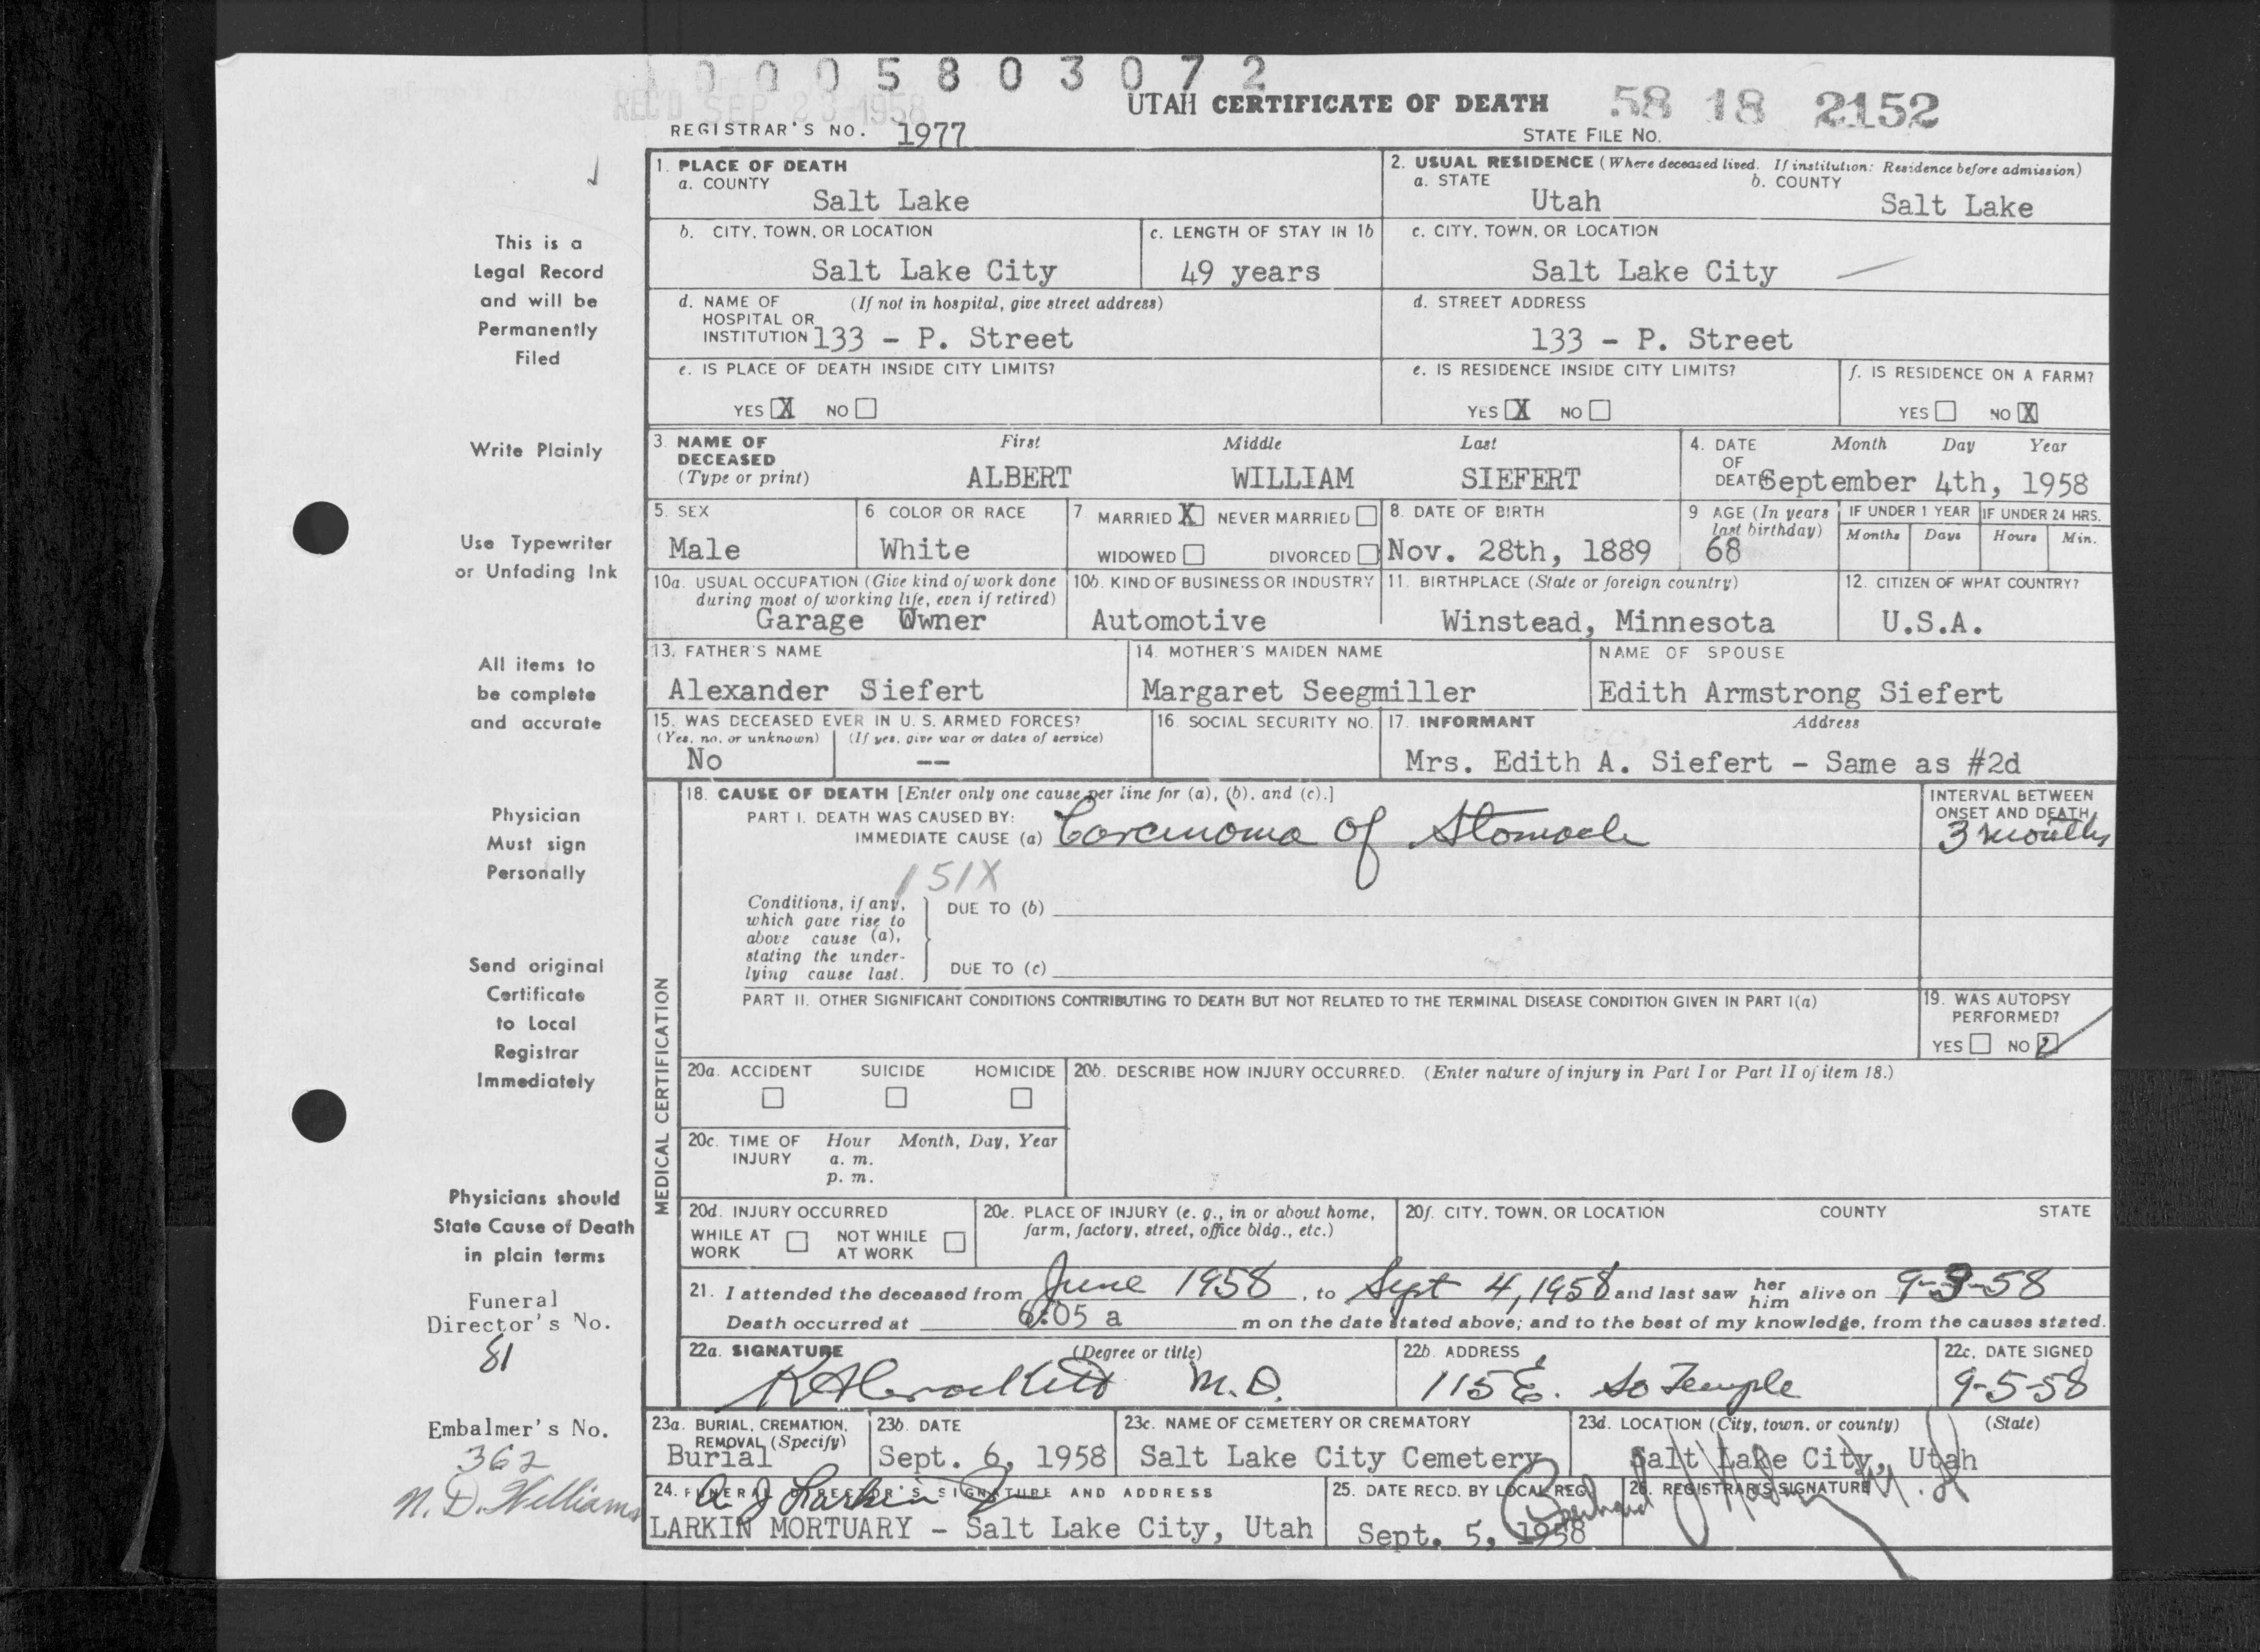 0005803072
REC'D SEP 23 1958
UTAH CERTIFICATE OF DEATH
58 18 2152
REGISTRAR'S NO. 1977
STATE FILE NO.
1. PLACE OF DEATH
a. COUNTY
Salt Lake
2. USUAL RESIDENCE (Where deceased lived. If institution: Residence before admission)
a. STATE
Utah
b. COUNTY
Salt Lake
b. CITY, TOWN, OR LOCATION
Salt Lake City
c. LENGTH OF STAY IN 1b
49 years
c. CITY, TOWN, OR LOCATION
Salt Lake City
d. NAME OF HOSPITAL OR INSTITUTION (If not in hospital, give street address)
133 - P. Street
d. STREET ADDRESS
133 - P. Street
e. IS PLACE OF DEATH INSIDE CITY LIMITS?
YES X NO
e. IS RESIDENCE INSIDE CITY LIMITS?
YES X NO
f. IS RESIDENCE ON A FARM?
YES NO X
3. NAME OF DECEASED (Type or print)
First Middle Last
ALBERT WILLIAM SIEFERT
4. DATE OF DEATH
Month Day Year
September 4th, 1958
5. SEX
Male
6. COLOR OR RACE
White
7 MARRIED X NEVER MARRIED
WIDOWED DIVORCED
8. DATE OF BIRTH
Nov. 28th, 1889
9 AGE (In years last birthday)
68
IF UNDER 1 YEAR
Months Days
IF UNDER 24 HRS.
Hours Min.
10a. USUAL OCCUPATION (Give kind of work done during most of working life, even if retired)
Garage Owner
10b. KIND OF BUSINESS OR INDUSTRY
Automotive
11. BIRTHPLACE (State or foreign country)
Winstead, Minnesota
12. CITIZEN OF WHAT COUNTRY?
U.S.A.
13. FATHER'S NAME
Alexander Siefert
14. MOTHER'S MAIDEN NAME
Margaret Seegmiller
NAME OF SPOUSE
Edith Armstrong Siefert
15. WAS DECEASED EVER IN U. S. ARMED FORCES?
(Yes, no, or unknown) (If yes, give war or dates of service)
No --
16. SOCIAL SECURITY NO.
17. INFORMANT Address
Mrs. Edith A. Siefert - Same as #2d
MEDICAL CERTIFICATION
18. CAUSE OF DEATH [Enter only one cause per line for (a), (b), and (c).]
PART I. DEATH WAS CAUSED BY:
IMMEDIATE CAUSE (a) Carcinoma of Stomach
INTERVAL BETWEEN ONSET AND DEATH
3 months
151X
Conditions, if any, which gave rise to above cause (a), stating the underlying cause last.
DUE TO (b)
DUE TO (c)
PART II. OTHER SIGNIFICANT CONDITIONS CONTRIBUTING TO DEATH BUT NOT RELATED TO THE TERMINAL DISEASE CONDITION GIVEN IN PART I(a)
19. WAS AUTOPSY PERFORMED?
YES NO
20a. ACCIDENT SUICIDE HOMICIDE
20b. DESCRIBE HOW INJURY OCCURRED. (Enter nature of injury in Part I or Part II of item 18.)
20c. TIME OF INJURY
Hour Month, Day, Year
a. m.
p. m.
20d. INJURY OCCURRED
WHILE AT WORK NOT WHILE AT WORK
20e. PLACE OF INJURY (e. g., in or about home, farm, factory, street, office bldg., etc.)
20f. CITY, TOWN, OR LOCATION COUNTY STATE
21. I attended the deceased from June 1958, to Sept 4, 1958 and last saw her him alive on 9-3-58
Death occurred at 6:05 a m on the date stated above; and to the best of my knowledge, from the causes stated.
22a. SIGNATURE (Degree or title)
M.D.
22b. ADDRESS
115 E. So Temple
22c. DATE SIGNED
9-5-58
23a. BURIAL, CREMATION, REMOVAL (Specify)
Burial
23b. DATE
Sept. 6, 1958
23c. NAME OF CEMETERY OR CREMATORY
Salt Lake City Cemetery
23d. LOCATION (City, town, or county) (State)
Salt Lake City, Utah
24. FUNERAL DIRECTOR'S SIGNATURE AND ADDRESS
A J Larkin
LARKIN MORTUARY - Salt Lake City, Utah
25. DATE RECD. BY LOCAL REG.
Sept. 5, 1958
26. REGISTRAR'S SIGNATURE
This is a
Legal Record
and will be
Permanently
Filed
Write Plainly
Use Typewriter
or Unfading Ink
All items to
be complete
and accurate
Physician
Must sign
Personally
Send original
Certificate
to Local
Registrar
Immediately
Physicians should
State Cause of Death
in plain terms
Funeral
Director's No.
81
Embalmer's No.
362
N. D. Williams